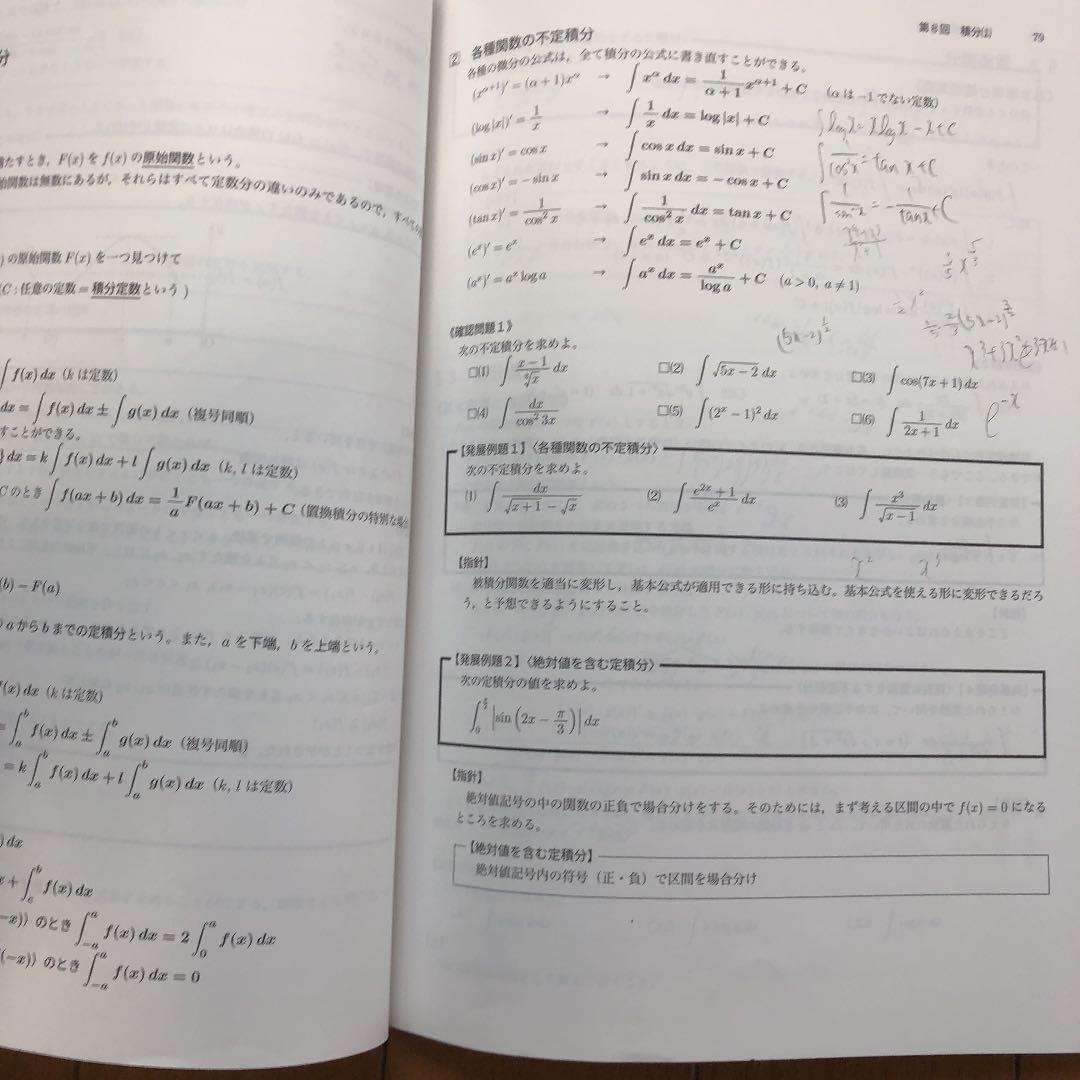 分
満たすとき,F(x) を f(x) の原始関数という。
始関数は無数にあるが,それらはすべて定数分の違いのみであるので,すべての
の原始関数 F(x) を一つ見つけて
(C : 任意の定数 = 積分定数という )
∫ f(x) dx (k は定数)
dx = ∫ f(x) dx ± ∫ g(x) dx (複号同順)
すことができる。
} dx = k ∫ f(x) dx + l ∫ g(x) dx (k, l は定数)
C のとき ∫ f(ax + b) dx = 1/a F(ax + b) + C (置換積分の特別な場合
(b) − F(a)
a から b までの定積分という。また,a を下端,b を上端という。
f(x) dx (k は定数)
= ∫_a^b f(x) dx ± ∫_a^b g(x) dx (複号同順)
= k ∫_a^b f(x) dx + l ∫_a^b g(x) dx (k, l は定数)
) dx
+ ∫_c^b f(x) dx
(−x)) のとき ∫_{−a}^a f(x) dx = 2 ∫_0^a f(x) dx
(−x)) のとき ∫_{−a}^a f(x) dx = 0
第8回 積分(1) 79
2 各種関数の不定積分
各種の微分の公式は,全て積分の公式に書き直すことができる。
(x^{α+1})′ = (α + 1)x^α → ∫ x^α dx = 1/(α + 1) x^{α+1} + C (α は −1 でない定数)
(log |x|)′ = 1/x → ∫ 1/x dx = log |x| + C
∫log x = x log x − x + C
(sin x)′ = cos x → ∫ cos x dx = sin x + C
∫ 1/cos²x = tan x + C
(cos x)′ = − sin x → ∫ sin x dx = − cos x + C
∫ 1/sin²x = − 1/tan x + C
(tan x)′ = 1/cos² x → ∫ 1/cos² x dx = tan x + C
(e^x)′ = e^x → ∫ e^x dx = e^x + C
(a^x)′ = a^x log a → ∫ a^x dx = a^x/log a + C (a > 0, a ≠ 1)
(5x−2)^{1/2}
《確認問題1》
次の不定積分を求めよ。
□(1) ∫ (x − 1)/∛x dx □(2) ∫ √(5x − 2) dx □(3) ∫ cos(7x + 1) dx
□(4) ∫ dx/cos² 3x □(5) ∫ (2^x − 1)² dx □(6) ∫ 1/(2x + 1) dx
e^{−x}
【発展例題1】〈各種関数の不定積分〉
次の不定積分を求めよ。
(1) ∫ dx/(√(x + 1) − √x) (2) ∫ (e^{2x} + 1)/e^x dx (3) ∫ x³/√(x − 1) dx
【指針】
被積分関数を適当に変形し,基本公式が適用できる形に持ち込む。基本公式を使える形に変形できるだろ
う,と予想できるようにすること。
【発展例題2】〈絶対値を含む定積分〉
次の定積分の値を求めよ。
∫_0^{π/2} |sin (2x − π/3)| dx
【指針】
絶対値記号の中の関数の正負で場合分けをする。そのためには,まず考える区間の中で f(x) = 0 になる
ところを求める。
【絶対値を含む定積分】
絶対値記号内の符号(正・負)で区間を場合分け